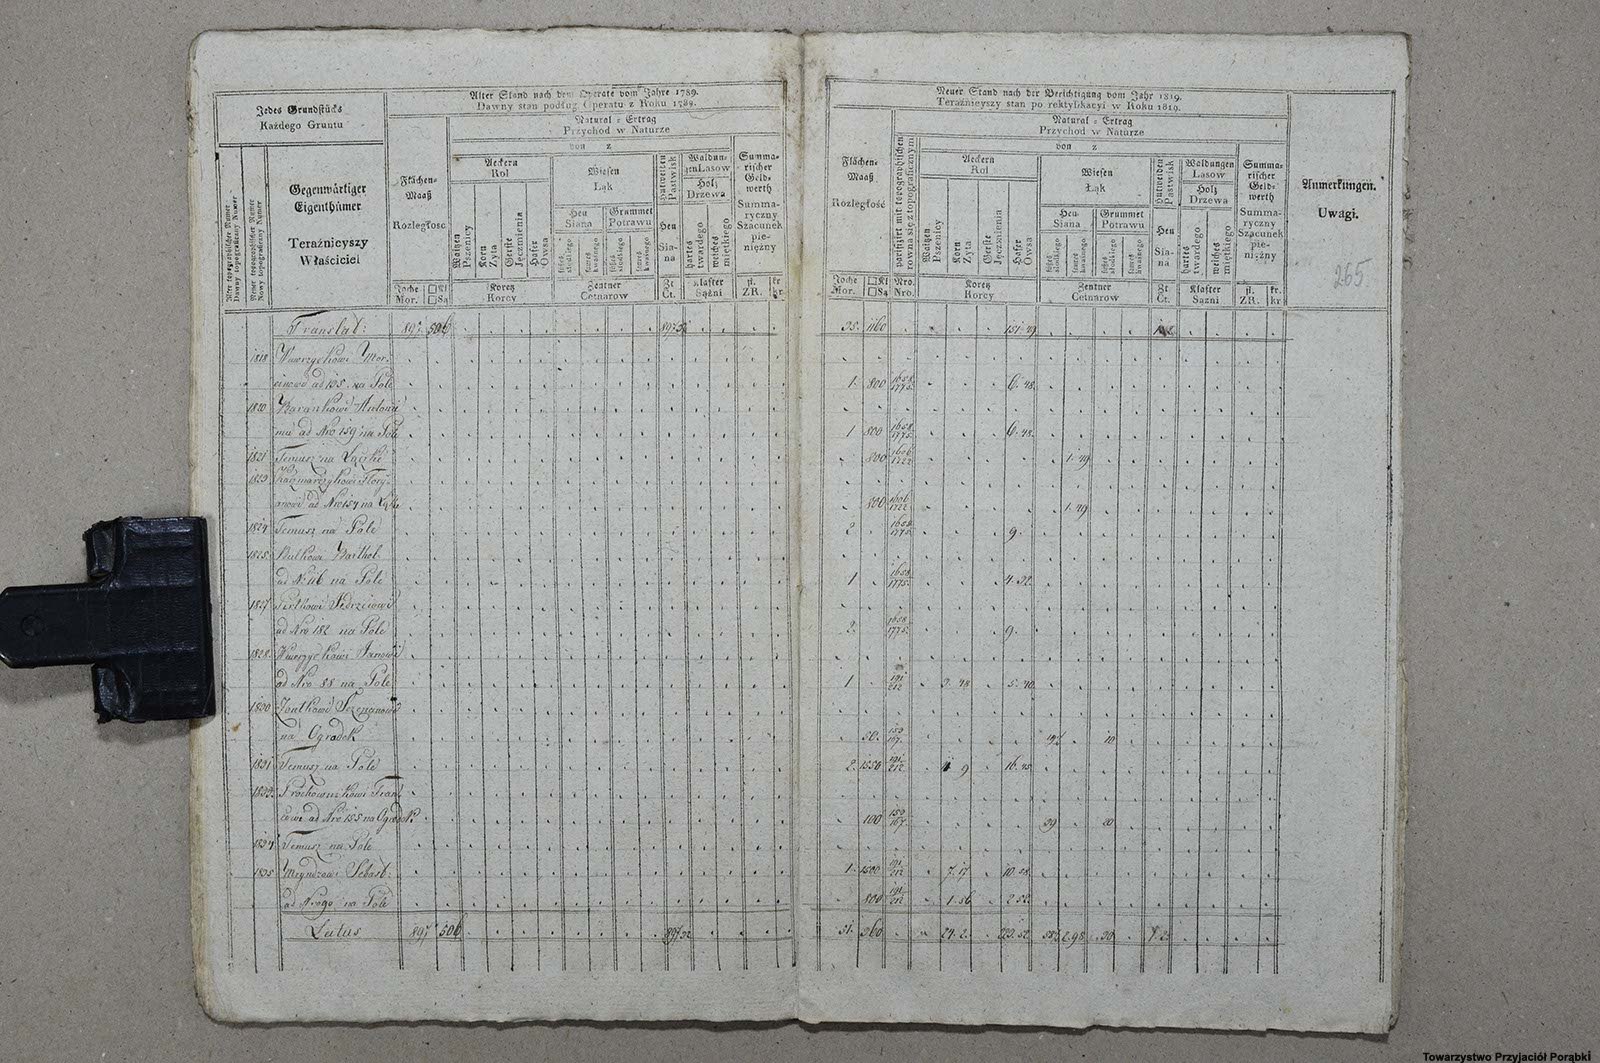 Jedes Grundstücks
Każdego Gruntu
Alter topografischer Numer
Dawny topograficzny Numer
Neuer topografischer Numer
Nowy topograficzny Numer
Gegenwärtiger
Eigenthümer
Teraźnieyszy
Właściciel
Alter Stand nach dem Operate vom Jahre 1789.
Dawny stan podług Operatu z Roku 1789.
Flächen-
Maaß
Rozległość
Joche □Kl
Mor. □Są
Natural = Ertrag
Przychod w Naturze
von z
Aeckern
Rol
Waitzen
Pszenicy
Korn
Żyta
Gerste
Jęczmienia
Hafer
Owsa
Koretz
Korcy
Wiesen
Łąk
Heu
Siana
Grummet
Potrawu
süßes
słodkiego
saures
kwaśnego
süßes
słodkiego
saures
kwaśnego
Zentner
Cetnarow
Hutweiden
Pastwisk
Heu
Sia-
na
Zt
Ct.
Waldun-
gen Lasow
Holz
Drzewa
hartes
twardego
weiches
miętkiego
Klafter
Sążni
Summa-
rischer
Geld-
werth
Summa-
ryczny
Szacunek
pie-
niężny
fl. kr
ZR. kr.
Neuer Stand nach der Berichtigung vom Jahr 1819.
Teraźnieyszy stan po rektyfikacyi w Roku 1819.
Flächen-
Maaß
Rozległość
Joche □Kl
Mor. □Są
parifizirt mit topographischen
rowna się z topograficznym
Nro.
Nro.
Natural = Ertrag
Przychod w Naturze
von z
Aeckern
Rol
Waitzen
Pszenicy
Korn
Żyta
Gerste
Jęczmienia
Hafer
Owsa
Koretz
Korcy
Wiesen
Łąk
Heu
Siana
Grummet
Potrawu
süßes
słodkiego
saures
kwaśnego
süßes
słodkiego
saures
kwaśnego
Zentner
Cetnarow
Hutweiden
Pastwisk
Heu
Sia-
na
Zt
Ct.
Waldungen
Lasow
Holz
Drzewa
hartes
twardego
weiches
miętkiego
Klafter
Sążni
Summa-
rischer
Geld-
werth
Summa-
ryczny
Szacunek
pie-
niężny
fl. kr.
ZR. kr
Anmerkungen.
Uwagi.
265.
Translat: 897. 506 35. 1160 151. 49
1818 Wawrzyckowi Mar-
cinowi ad 195. na Pole 1. 800 1658/1775 6. 48.
1820 Barankowi Antonie
mu ad Nro 159 na Pole 1 800 1658/1775 6. 48.
1821 Temusz na Łączkę 800 1606/1722 1. 49
1823 Kaczmarczykowi Flory-
anowi ad Nro 157 na Łąkę 800 1606/1722 1. 49
1824 Temusz na Pole 2 1658/1775 9.
1825 Bulkowi Barthol.
ad Nr 116 na Pole 1 1658/1775 4. 32.
1827 Jędrzeiowi
ad Nro 182 na Pole 2. 1658/1775 9.
1828 Janowi
ad Nro 88 na Pole 1 191/212 3. 48 5. 40
1830 Szczepanowi
na Ogrodek 50. 150/167. 10
1831 Temusz na Pole 2. 1556 191/212 9 16. 45
1833 Prochownikowi Fran-
ad Nro 155 na Ogrodek 100 150/167. 39 20
1834 Temusz na Pole
1835 Sebast: 1. 1500 191/212 7. 17 10. 58
na Pole 800 191/212 1. 56 2. 52
Latus 897 506 897 32 51. 360 24. 2. 223. 52 30 7. 2
Towarzystwo Przyjaciół Porąbki